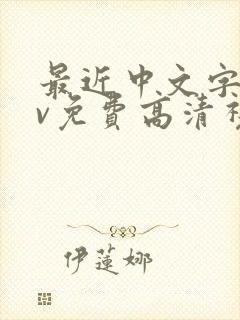 最近中文字
v免费高清
伊莲娜